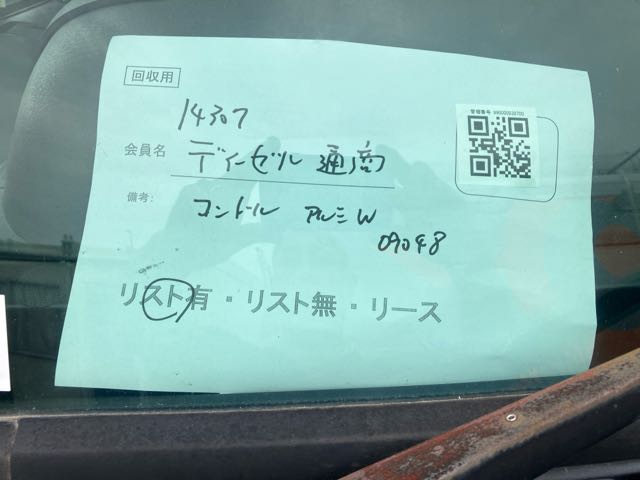 回収用
管理番号
14307
会員名 ディーゼル 通商
備考: コンドール アルミW
09048
リスト有 ・ リスト無 ・ リース